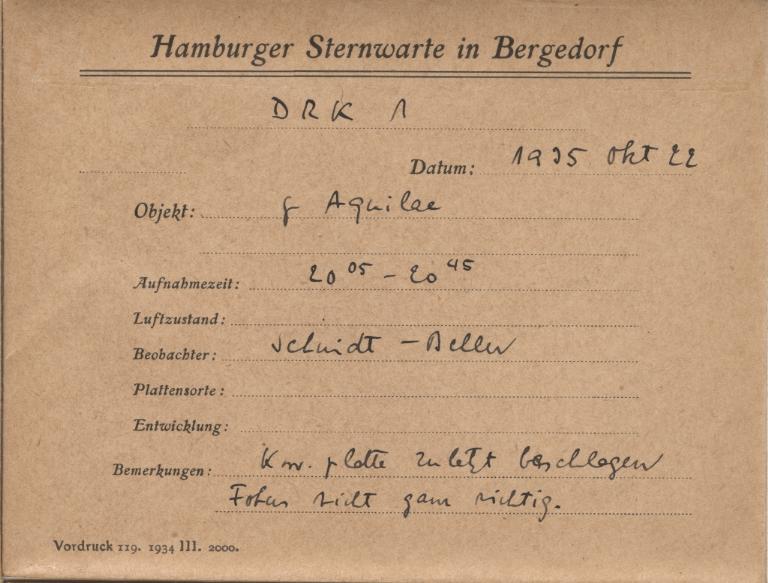 Hamburger Sternwarte in Bergedorf
DRK 1
Datum: 1935 Okt 22
Objekt: γ Aquilae
Aufnahmezeit: 20 05 – 20 45
Luftzustand:
Beobachter: Schmidt –
Plattensorte:
Entwicklung:
Bemerkungen: Korr. platte zuletzt beschlagen
Fokus nicht ganz richtig.
Vordruck 119. 1934 III. 2000.